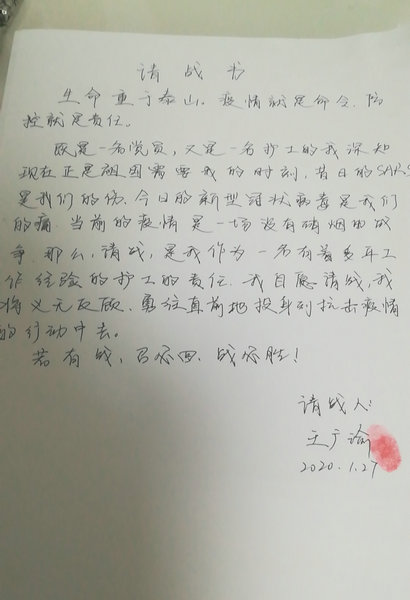 请战书
生命重于泰山。疫情就是命令。防
控就是责任。
既是一名党员,又是一名护士的我深知
现在正是祖国需要我的时刻,昔日的SARS
是我们的伤。今日的新型冠状病毒是我们
的痛。当前的疫情是一场没有硝烟的战
争。那么,请战,是我作为一名有着多年工
作经验的护士的责任。我自愿请战,我
将义无反顾、勇往直前地投身到抗击疫情
的行动中去。
若有战,召必回、战必胜!
请战人:
王广谕
2020.1.27